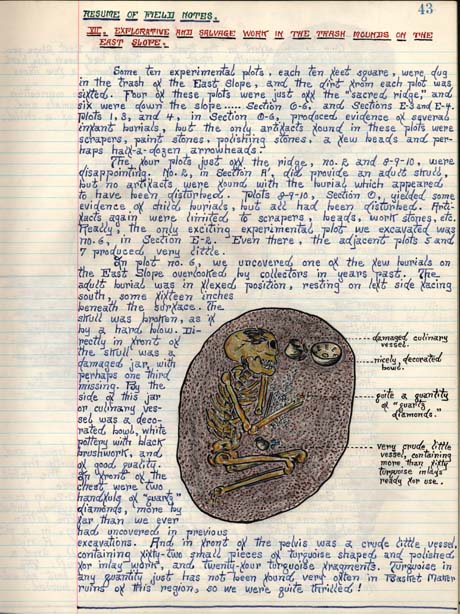 43
RESUME OF FIELD NOTES.
VII. EXPLORATIVE AND SALVAGE WORK IN THE TRASH MOUNDS ON THE
EAST SLOPE.
Some ten experimental plots, each ten feet square, were dug
in the trash of the East Slope, and the dirt from each plot was
sifted. Four of these plots were just off the "sacred ridge," and
six were down the slope..... Section O-6, and Sections E-3 and E-4.
Plots 1, 3, and 4, in Section O-6, produced evidence of several
infant burials, but the only artifacts found in these plots were
scrapers, paint stones, polishing stones, a few beads and per-
haps half-a-dozen arrowheads.
The four plots just off the ridge, no. 2 and 8-9-10, were
disappointing. No. 2, in Section A', did provide an adult skull,
but no artifacts were found with the burial which appeared
to have been disturbed. Plots 9-9-10, Section O, yielded some
evidence of child burials, but all had been disturbed. Arti-
facts again were limited to scrapers, beads, work stones, etc.
Really, the only exciting experimental plot we excavated was
no. 6, in Section E-2. Even there, the adjacent plots 5 and
7 produced very little.
In plot no. 6, we uncovered one of the few burials on
the East Slope overlooked by collectors in years past. The
adult burial was in flexed position, resting on left side facing
south, some fifteen inches
beneath the surface. The
skull was broken, as if
by a hard blow. Di-
rectly in front of
the skull was a
damaged jar, with
perhaps one third
missing. By the
side of this jar
or culinary ves-
sel was a deco-
rated bowl, white
pottery with black
brushwork, and
of good quality.
In front of the
chest were two
handfuls of "quartz"
diamonds, more by
far than we ever
had uncovered in previous
excavations. And in front of the pelvis was a crude little vessel,
containing fifty-two small pieces of turquoise shaped and polished
for inlay work, and twenty-four turquoise fragments. Turquoise in
any quantity just has not been found very often in Basket Maker
ruins of this region, so we were quite thrilled!
damaged culinary
vessel.
nicely decorated
bowl.
quite a quantity
of "quartz
diamonds."
very crude little
vessel, containing
more than fifty
turquoise inlays
ready for use.